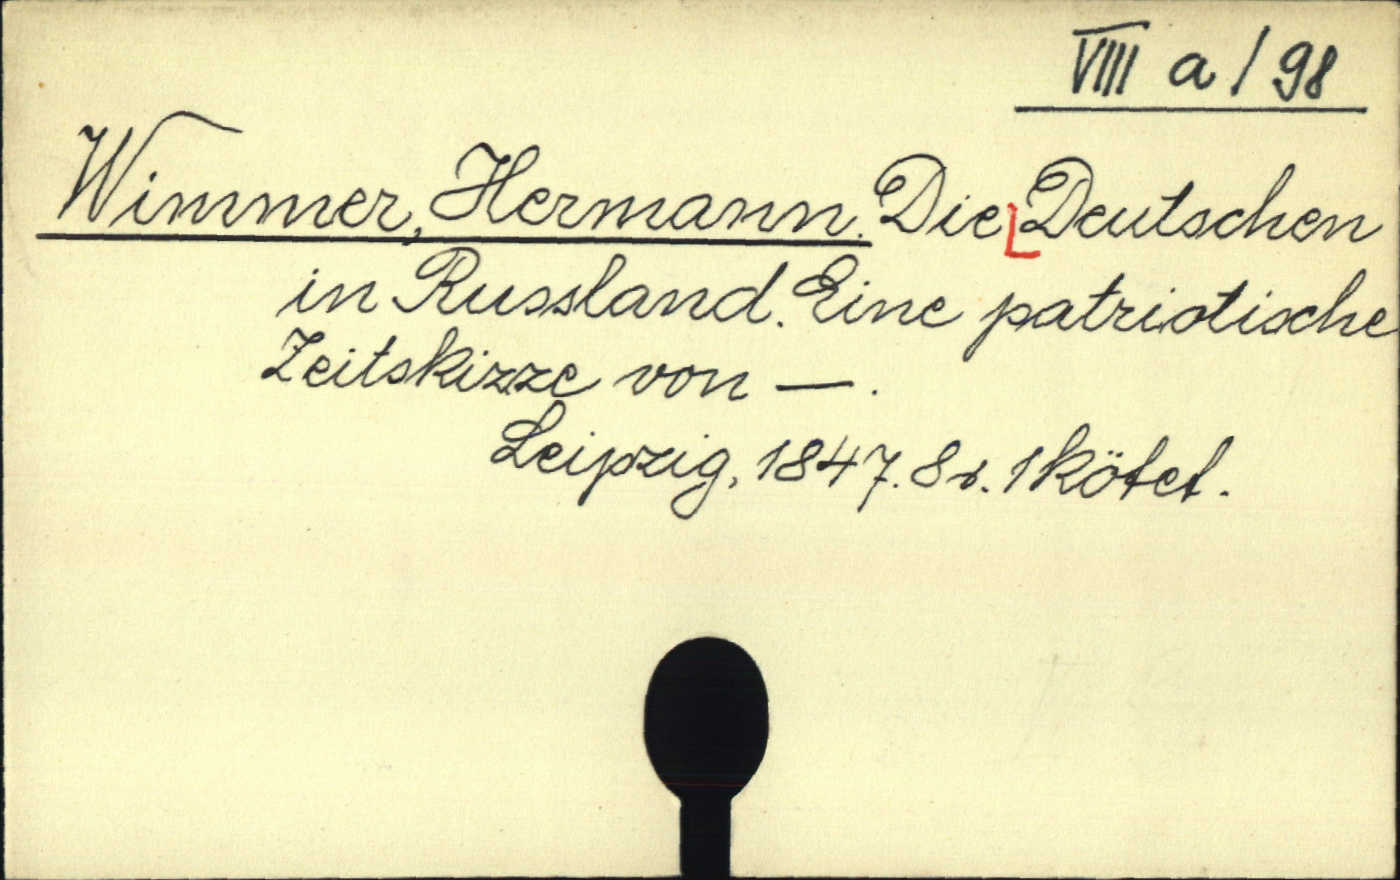 VIII a / 98
Wimmer, Hermann. Die Deutschen
in Russland. Eine patriotische
Zeitskizze von —.
Leipzig, 1847. 8r. 1 kötet.